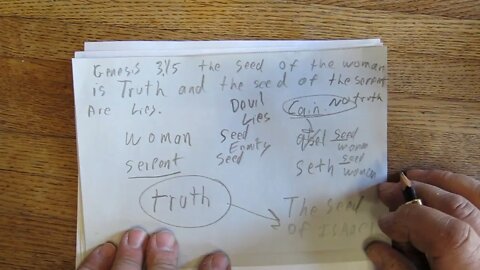 Genesis 3:15 the seed of the woman
is Truth and the seed of the serpent
Are Lies.
Devil
Lies
Cain No truth
woman Seed
Enmity
serpent Seed
seed
woman
Seth seed
woman
truth
The Seed
of Israel